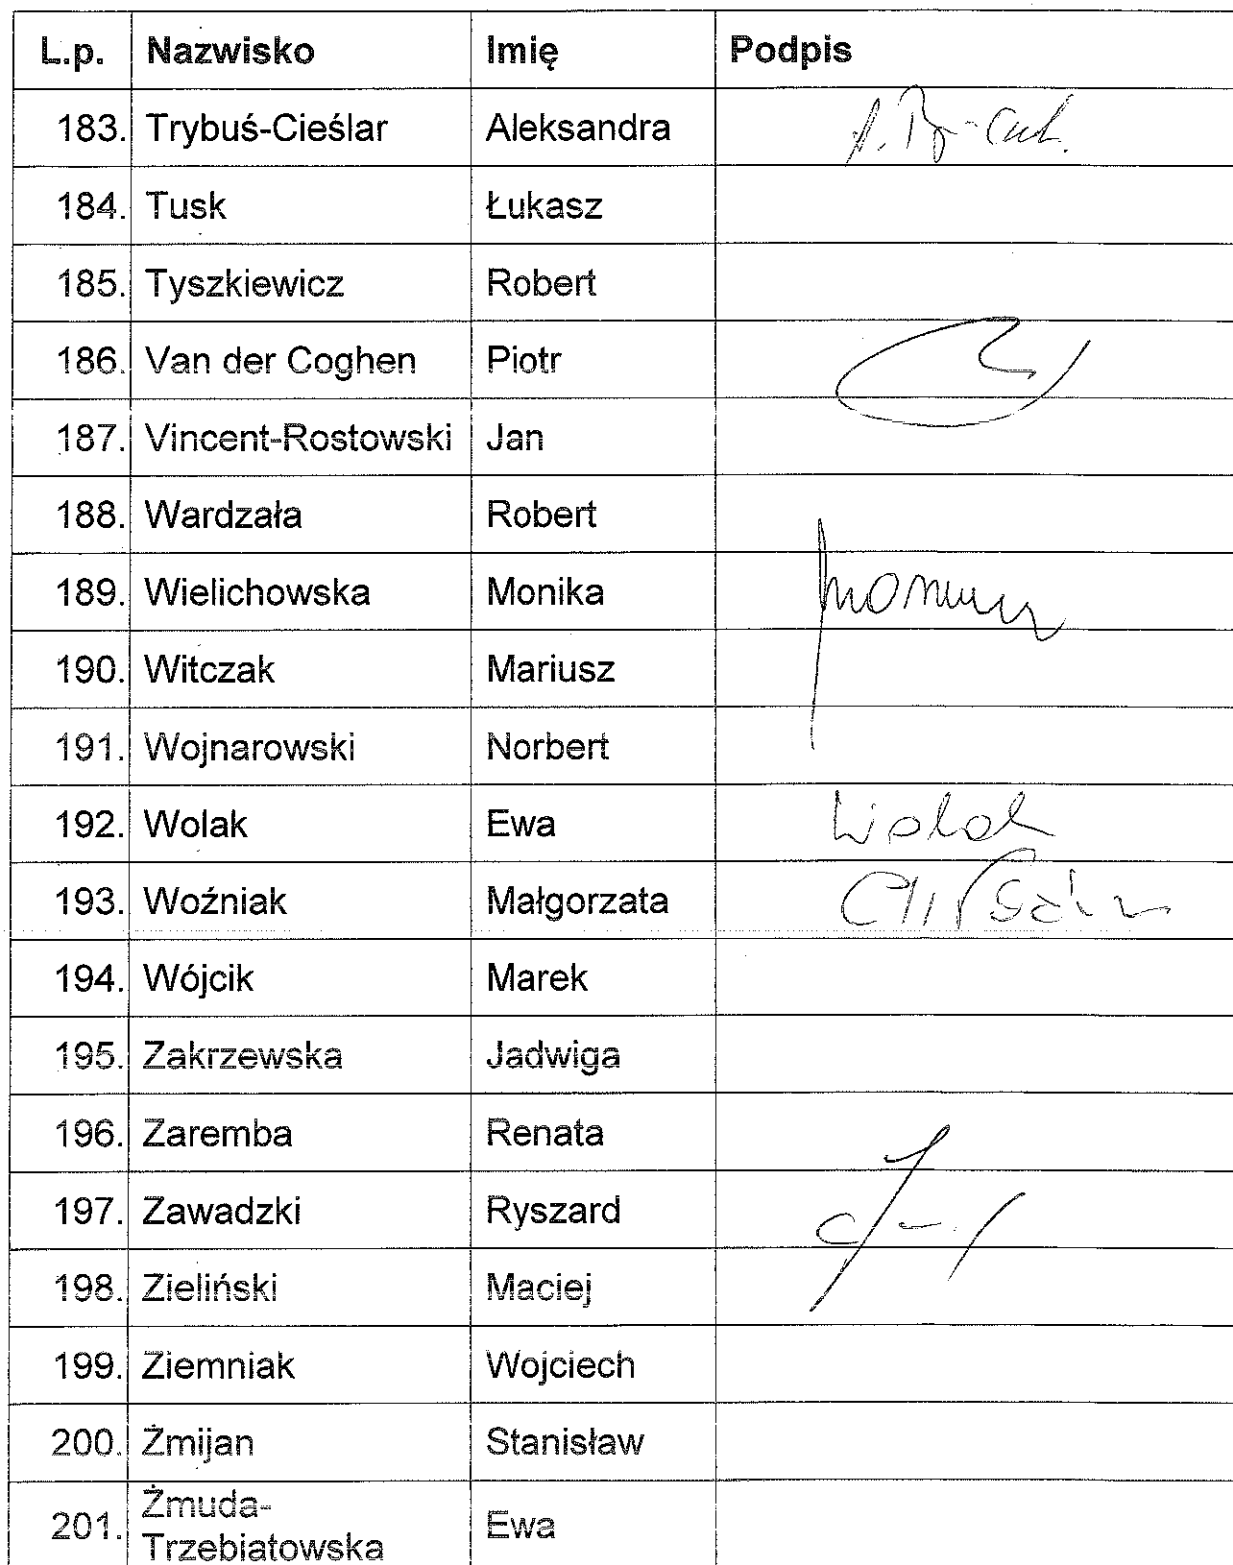 L.p. Nazwisko Imię Podpis
183. Trybuś-Cieślar Aleksandra
184. Tusk Łukasz
185. Tyszkiewicz Robert
186. Van der Coghen Piotr
187. Vincent-Rostowski Jan
188. Wardzała Robert
189. Wielichowska Monika
190. Witczak Mariusz
191. Wojnarowski Norbert
192. Wolak Ewa Wolak
193. Woźniak Małgorzata
194. Wójcik Marek
195. Zakrzewska Jadwiga
196. Zaremba Renata
197. Zawadzki Ryszard
198. Zieliński Maciej
199. Ziemniak Wojciech
200. Żmijan Stanisław
201. Żmuda-
Trzebiatowska Ewa